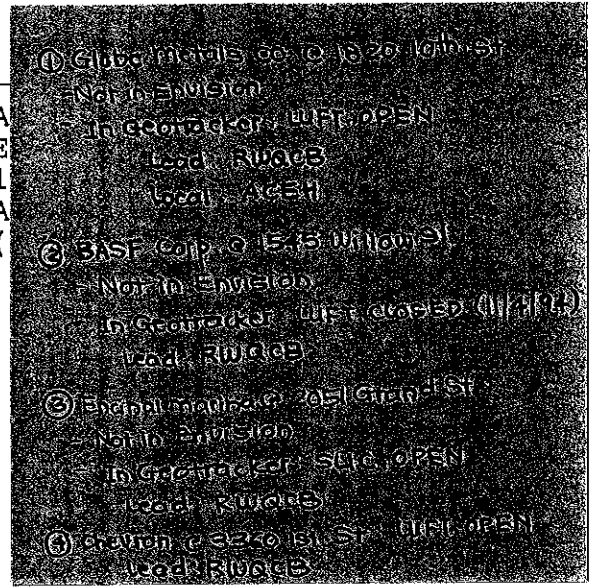 ① Globe Metals Co. @ 1820 10th St
- Not in Envision
- In Geotracker: LUFT, OPEN
Lead: RWQCB
Local: ACEH
② BASF Corp. @ 1545 Willow St
- Not in Envision
- In Geotracker: LUFT CLOSED (1/4/94)
Lead: RWQCB
③ Encinal Marina @ 2051 Grand St
- Not in Envision
- In Geotracker: SLIC, OPEN
Lead: RWQCB
④ Chevron @ 3360 1st St LUFT, OPEN
Lead: RWQCB